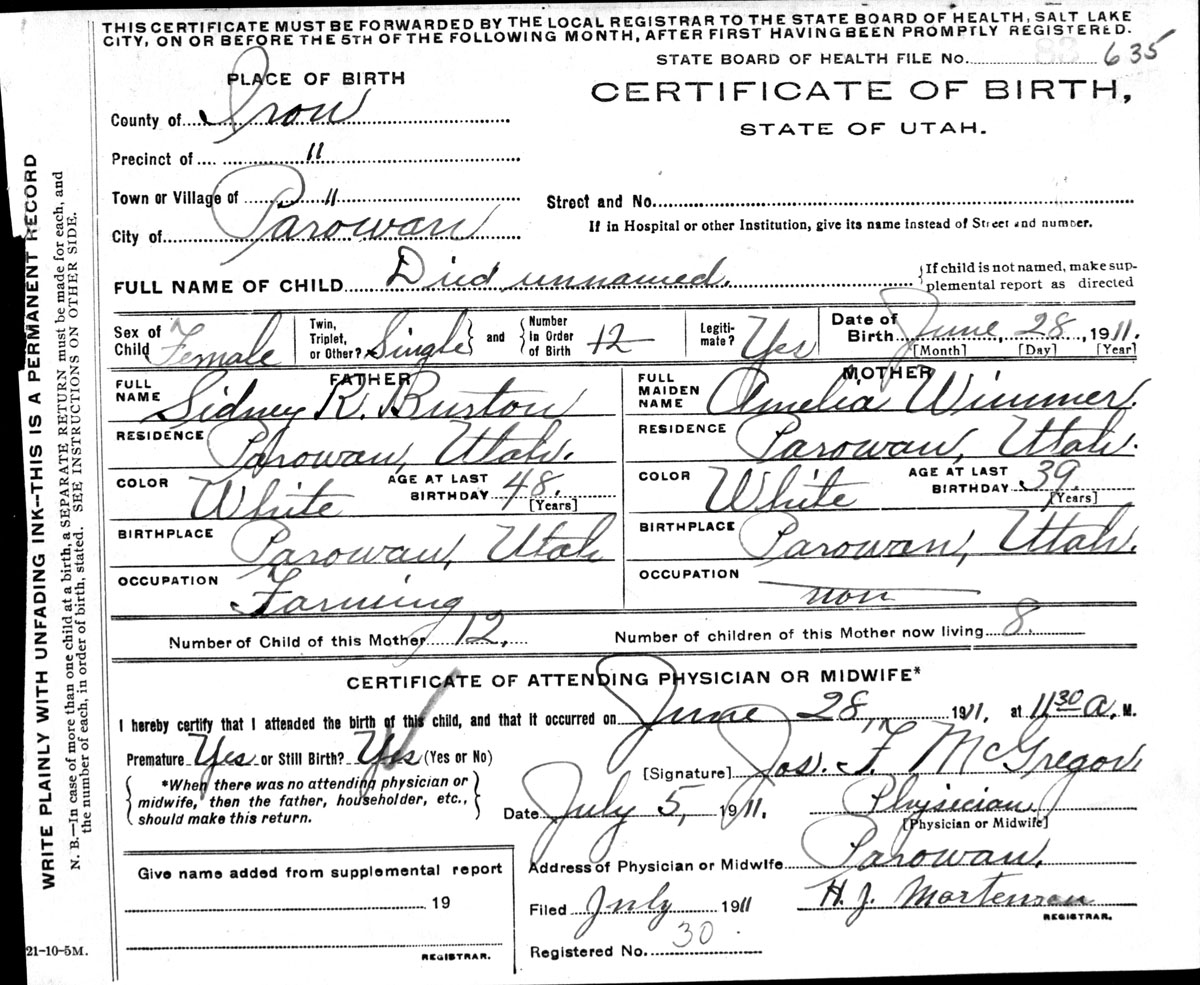 THIS CERTIFICATE MUST BE FORWARDED BY THE LOCAL REGISTRAR TO THE STATE BOARD OF HEALTH, SALT LAKE
CITY, ON OR BEFORE THE 5TH OF THE FOLLOWING MONTH, AFTER FIRST HAVING BEEN PROMPTLY REGISTERED.
STATE BOARD OF HEALTH FILE No. 635
PLACE OF BIRTH
CERTIFICATE OF BIRTH,
STATE OF UTAH.
County of Iron
Precinct of "
Town or Village of "
City of Parowan
Street and No.
If in Hospital or other Institution, give its name instead of Street and number.
FULL NAME OF CHILD Died unnamed. {If child is not named, make sup-
plemental report as directed
Sex of Child Female Twin, Triplet, or Other? Single} and {Number in Order of Birth 12 Legiti-mate? Yes Date of Birth June, 28, 1911.
[Month] [Day] [Year]
FATHER MOTHER
FULL NAME Sidney R. Burton FULL MAIDEN NAME Amelia Wimmer.
RESIDENCE Parowan, Utah. RESIDENCE Parowan, Utah.
COLOR White AGE AT LAST BIRTHDAY 48. [Years] COLOR White AGE AT LAST BIRTHDAY 39. [Years]
BIRTHPLACE Parowan, Utah BIRTHPLACE Parowan, Utah.
OCCUPATION Farming OCCUPATION non
Number of Child of this Mother 12. Number of children of this Mother now living 8.
CERTIFICATE OF ATTENDING PHYSICIAN OR MIDWIFE*
I hereby certify that I attended the birth of this child, and that it occurred on June 28 1911, at 11 30 A. M.
Premature Yes or Still Birth? Yes (Yes or No)
[Signature] Jos. F. McGregor,
*When there was no attending physician or
midwife, then the father, householder, etc.,
should make this return.
Date July 5, 1911. Physician
[Physician or Midwife]
Address of Physician or Midwife Parowan.
Give name added from supplemental report
19
REGISTRAR.
Filed July 1911 H. J. Mortensen
REGISTRAR.
Registered No. 30
21-10-5M.
WRITE PLAINLY WITH UNFADING INK--THIS IS A PERMANENT RECORD
N. B.—In case of more than one child at a birth, a SEPARATE RETURN must be made for each, and
the number of each, in order of birth, stated. SEE INSTRUCTIONS ON OTHER SIDE.